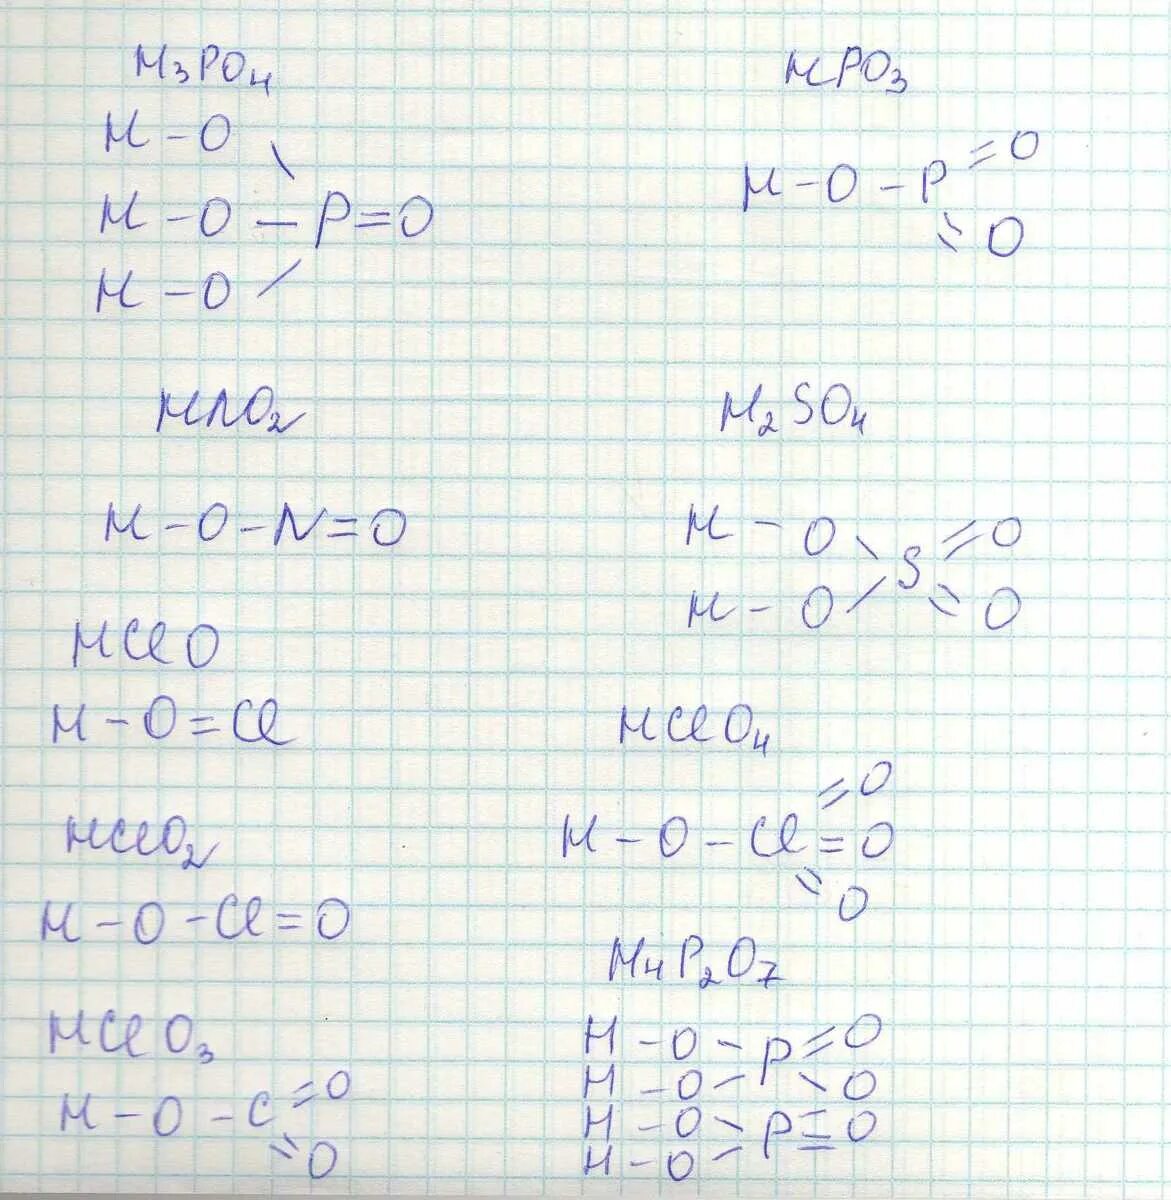 H₃PO₄
H-O
H-O-P=O
H-O
HPO₃
=O
H-O-P
=O
HNO₂
H-O-N=O
H₂SO₄
H-O =O
S
H-O =O
HClO
H-O=Cl
HClO₄
=O
H-O-Cl=O
=O
HClO₂
H-O-Cl=O
H₄P₂O₇
H-O-P=O
H-O- O
H-O-P=O
H-O-
HClO₃
=O
H-O-C
=O